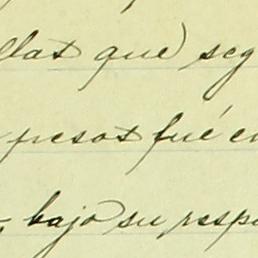 llas que seg
pesos fué e
, bajo su resp